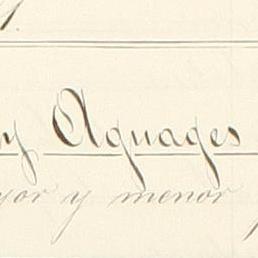 y Aguages
yor y menor